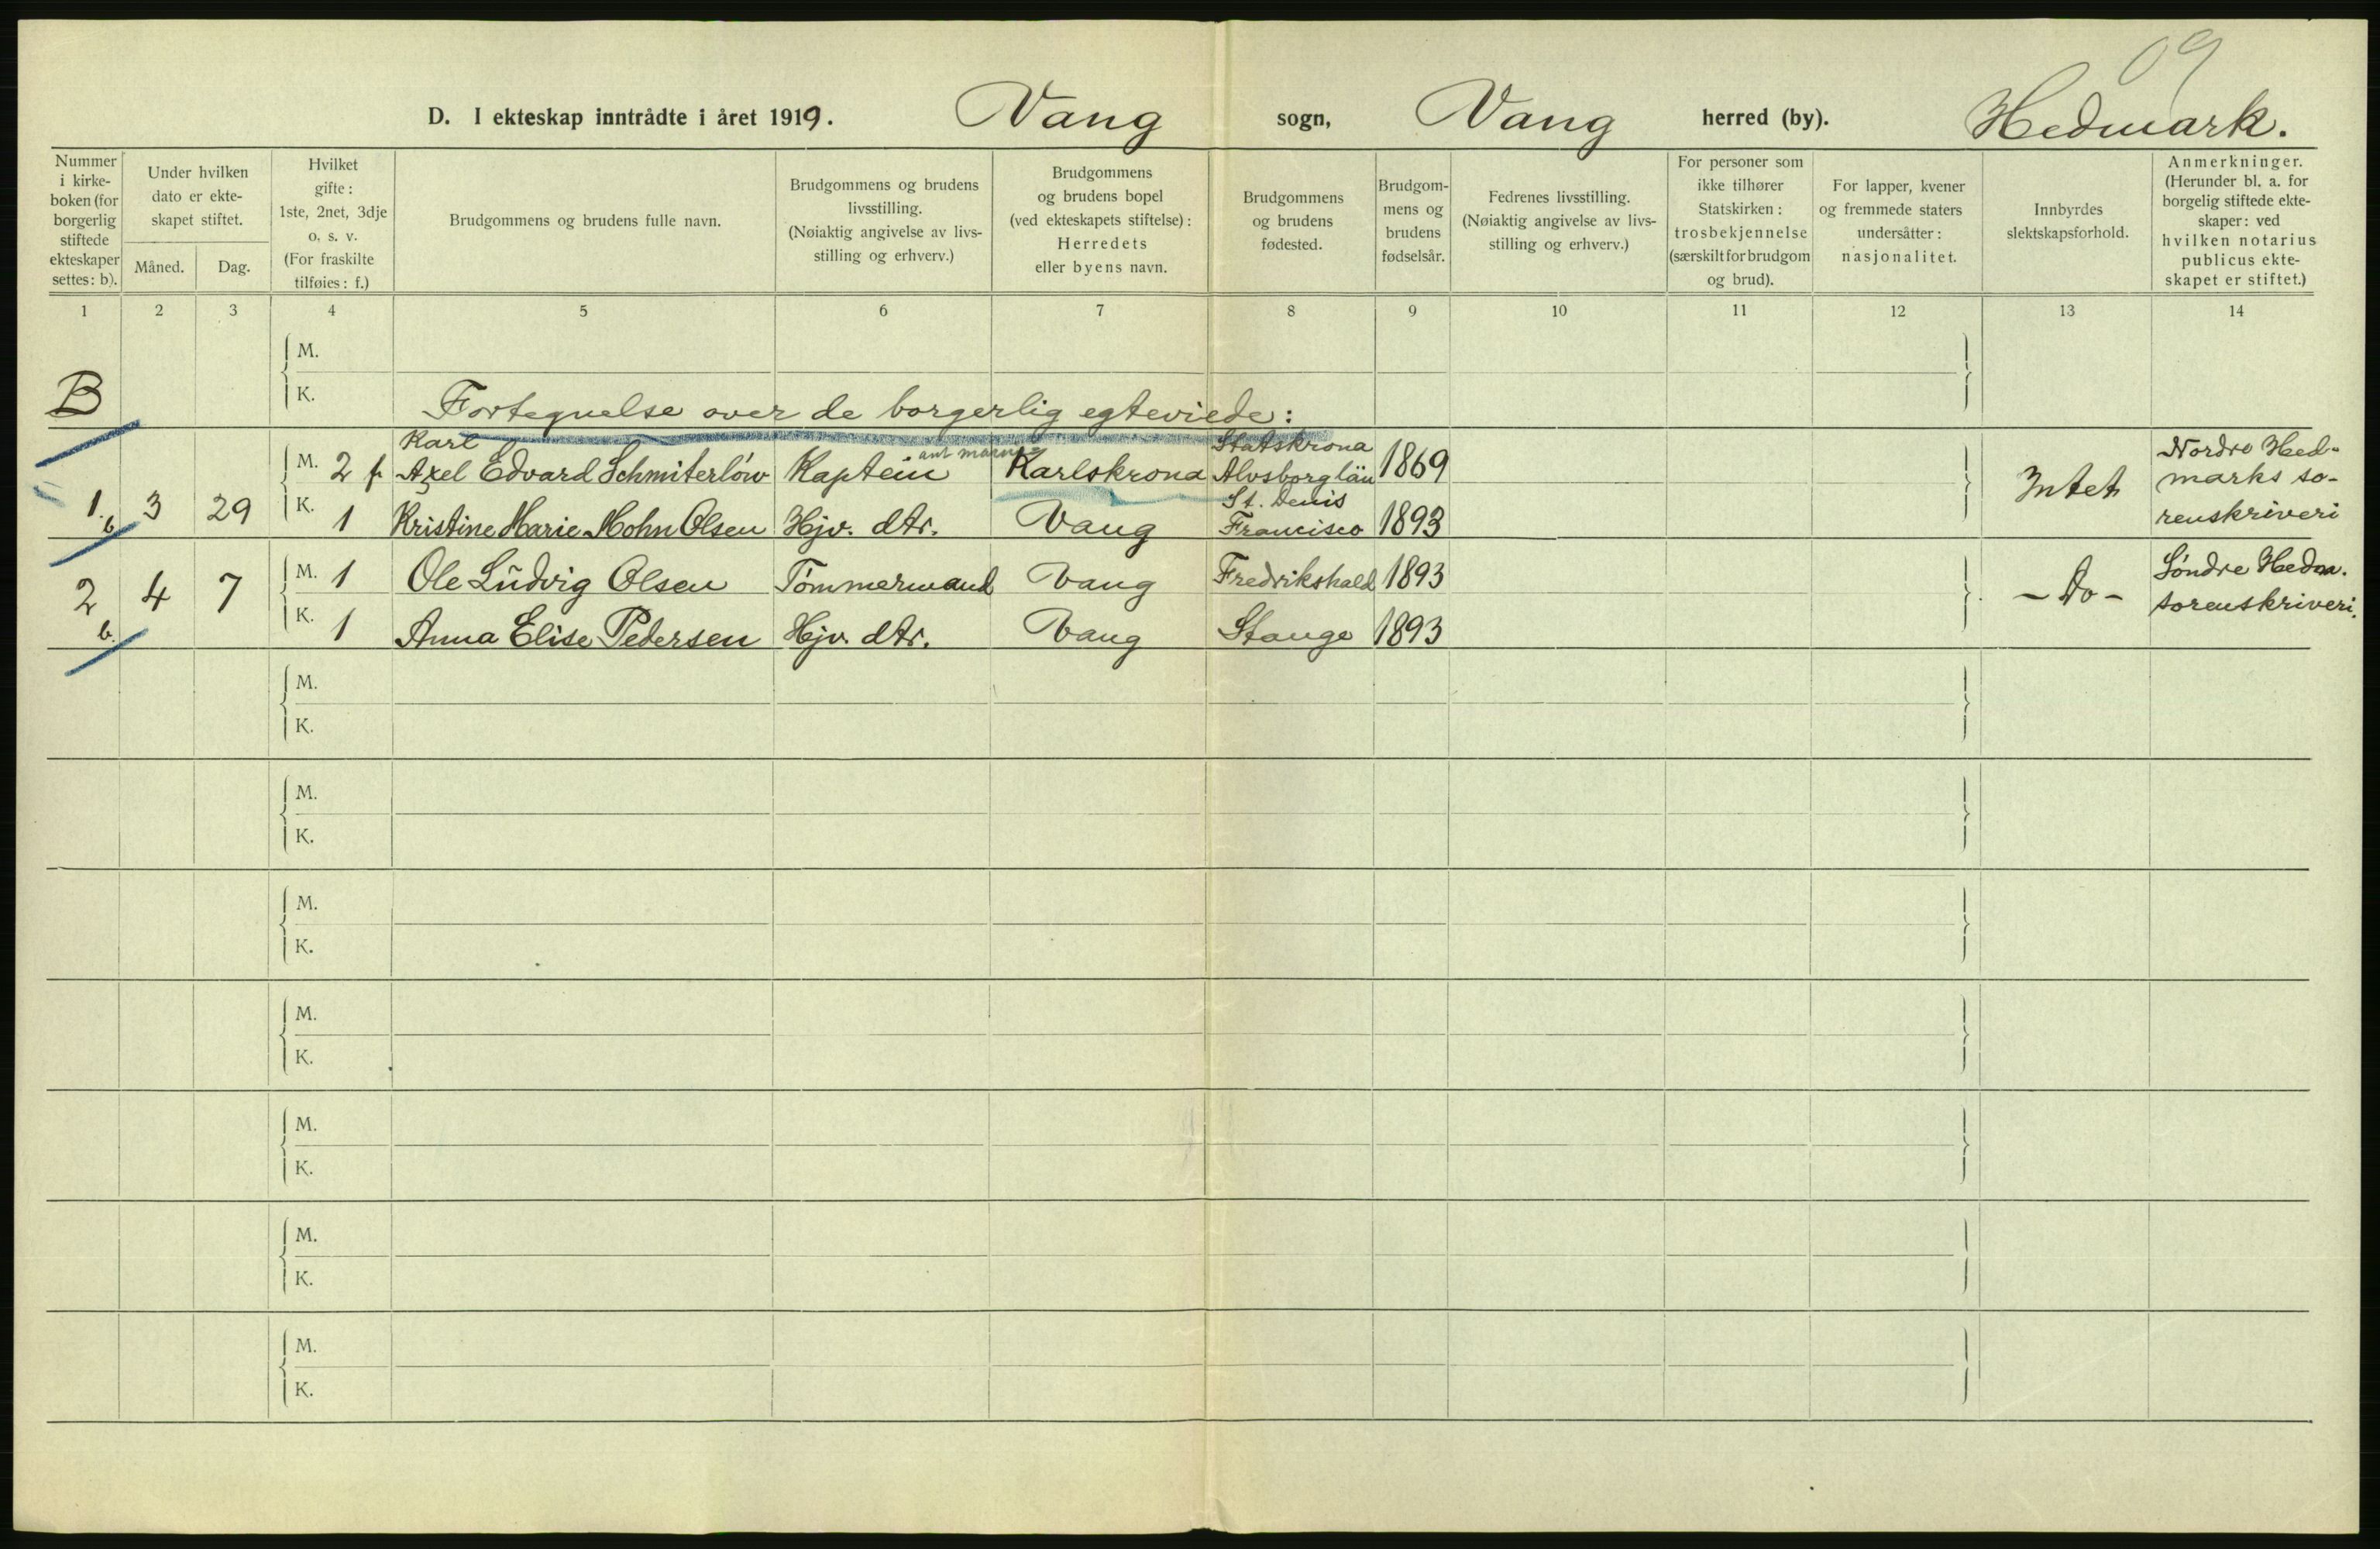 09
D. I ekteskap inntrådte i året 1919. Vang sogn, Vang herred (by). Hedmark.
Nummer
i kirke-
boken (for
borgerlig
stiftede
ekteskaper
settes: b).
Under hvilken
dato er ekte-
skapet stiftet.
Måned. Dag.
Hvilket
gifte:
1ste, 2net, 3dje
o. s. v.
(For fraskilte
tilføies: f.)
Brudgommens og brudens fulle navn.
Brudgommens og brudens
livsstilling.
(Nøiaktig angivelse av livs-
stilling og erhverv.)
Brudgommens
og brudens bopel
(ved ekteskapets stiftelse):
Herredets
eller byens navn.
Brudgommens
og brudens
fødested.
Brudgom-
mens og
brudens
fødselsår.
Fedrenes livsstilling.
(Nøiaktig angivelse av livs-
stilling og erhverv.)
For personer som
ikke tilhører
Statskirken:
trosbekjennelse
(særskilt for brudgom
og brud).
For lapper, kvener
og fremmede staters
undersåtter:
nasjonalitet.
Innbyrdes
slektskapsforhold.
Anmerkninger.
(Herunder bl. a. for
borgelig stiftede ekte-
skaper: ved
hvilken notarius
publicus ekte-
skapet er stiftet.)
1 2 3 4 5 6 7 8 9 10 11 12 13 14
M.
B K. Fortegnelse over de borgerlig egteviede:
Karl Statskrona
M. 2 f Axel Edvard Schmiterlöw Kaptein Karlskrona Alvsborg län 1869
1. b 3 29 K. 1 Kristine Marie Mohn Olsen Hjv. dtr. Vang St. Denis
Francisco 1893
Intet
Nordre Hed-
marks so-
renskriveri
M. 1 Ole Ludvig Olsen Tømmermand Vang Fredrikshald 1893
2 b. 4 7 K. 1 Anna Elise Pedersen Hjv. dtr. Vang Stange 1893
- Do -
Søndre Hedm.
sorenskriveri.
M.
K.
M.
K.
M.
K.
M.
K.
M.
K.
M.
K.
M.
K.